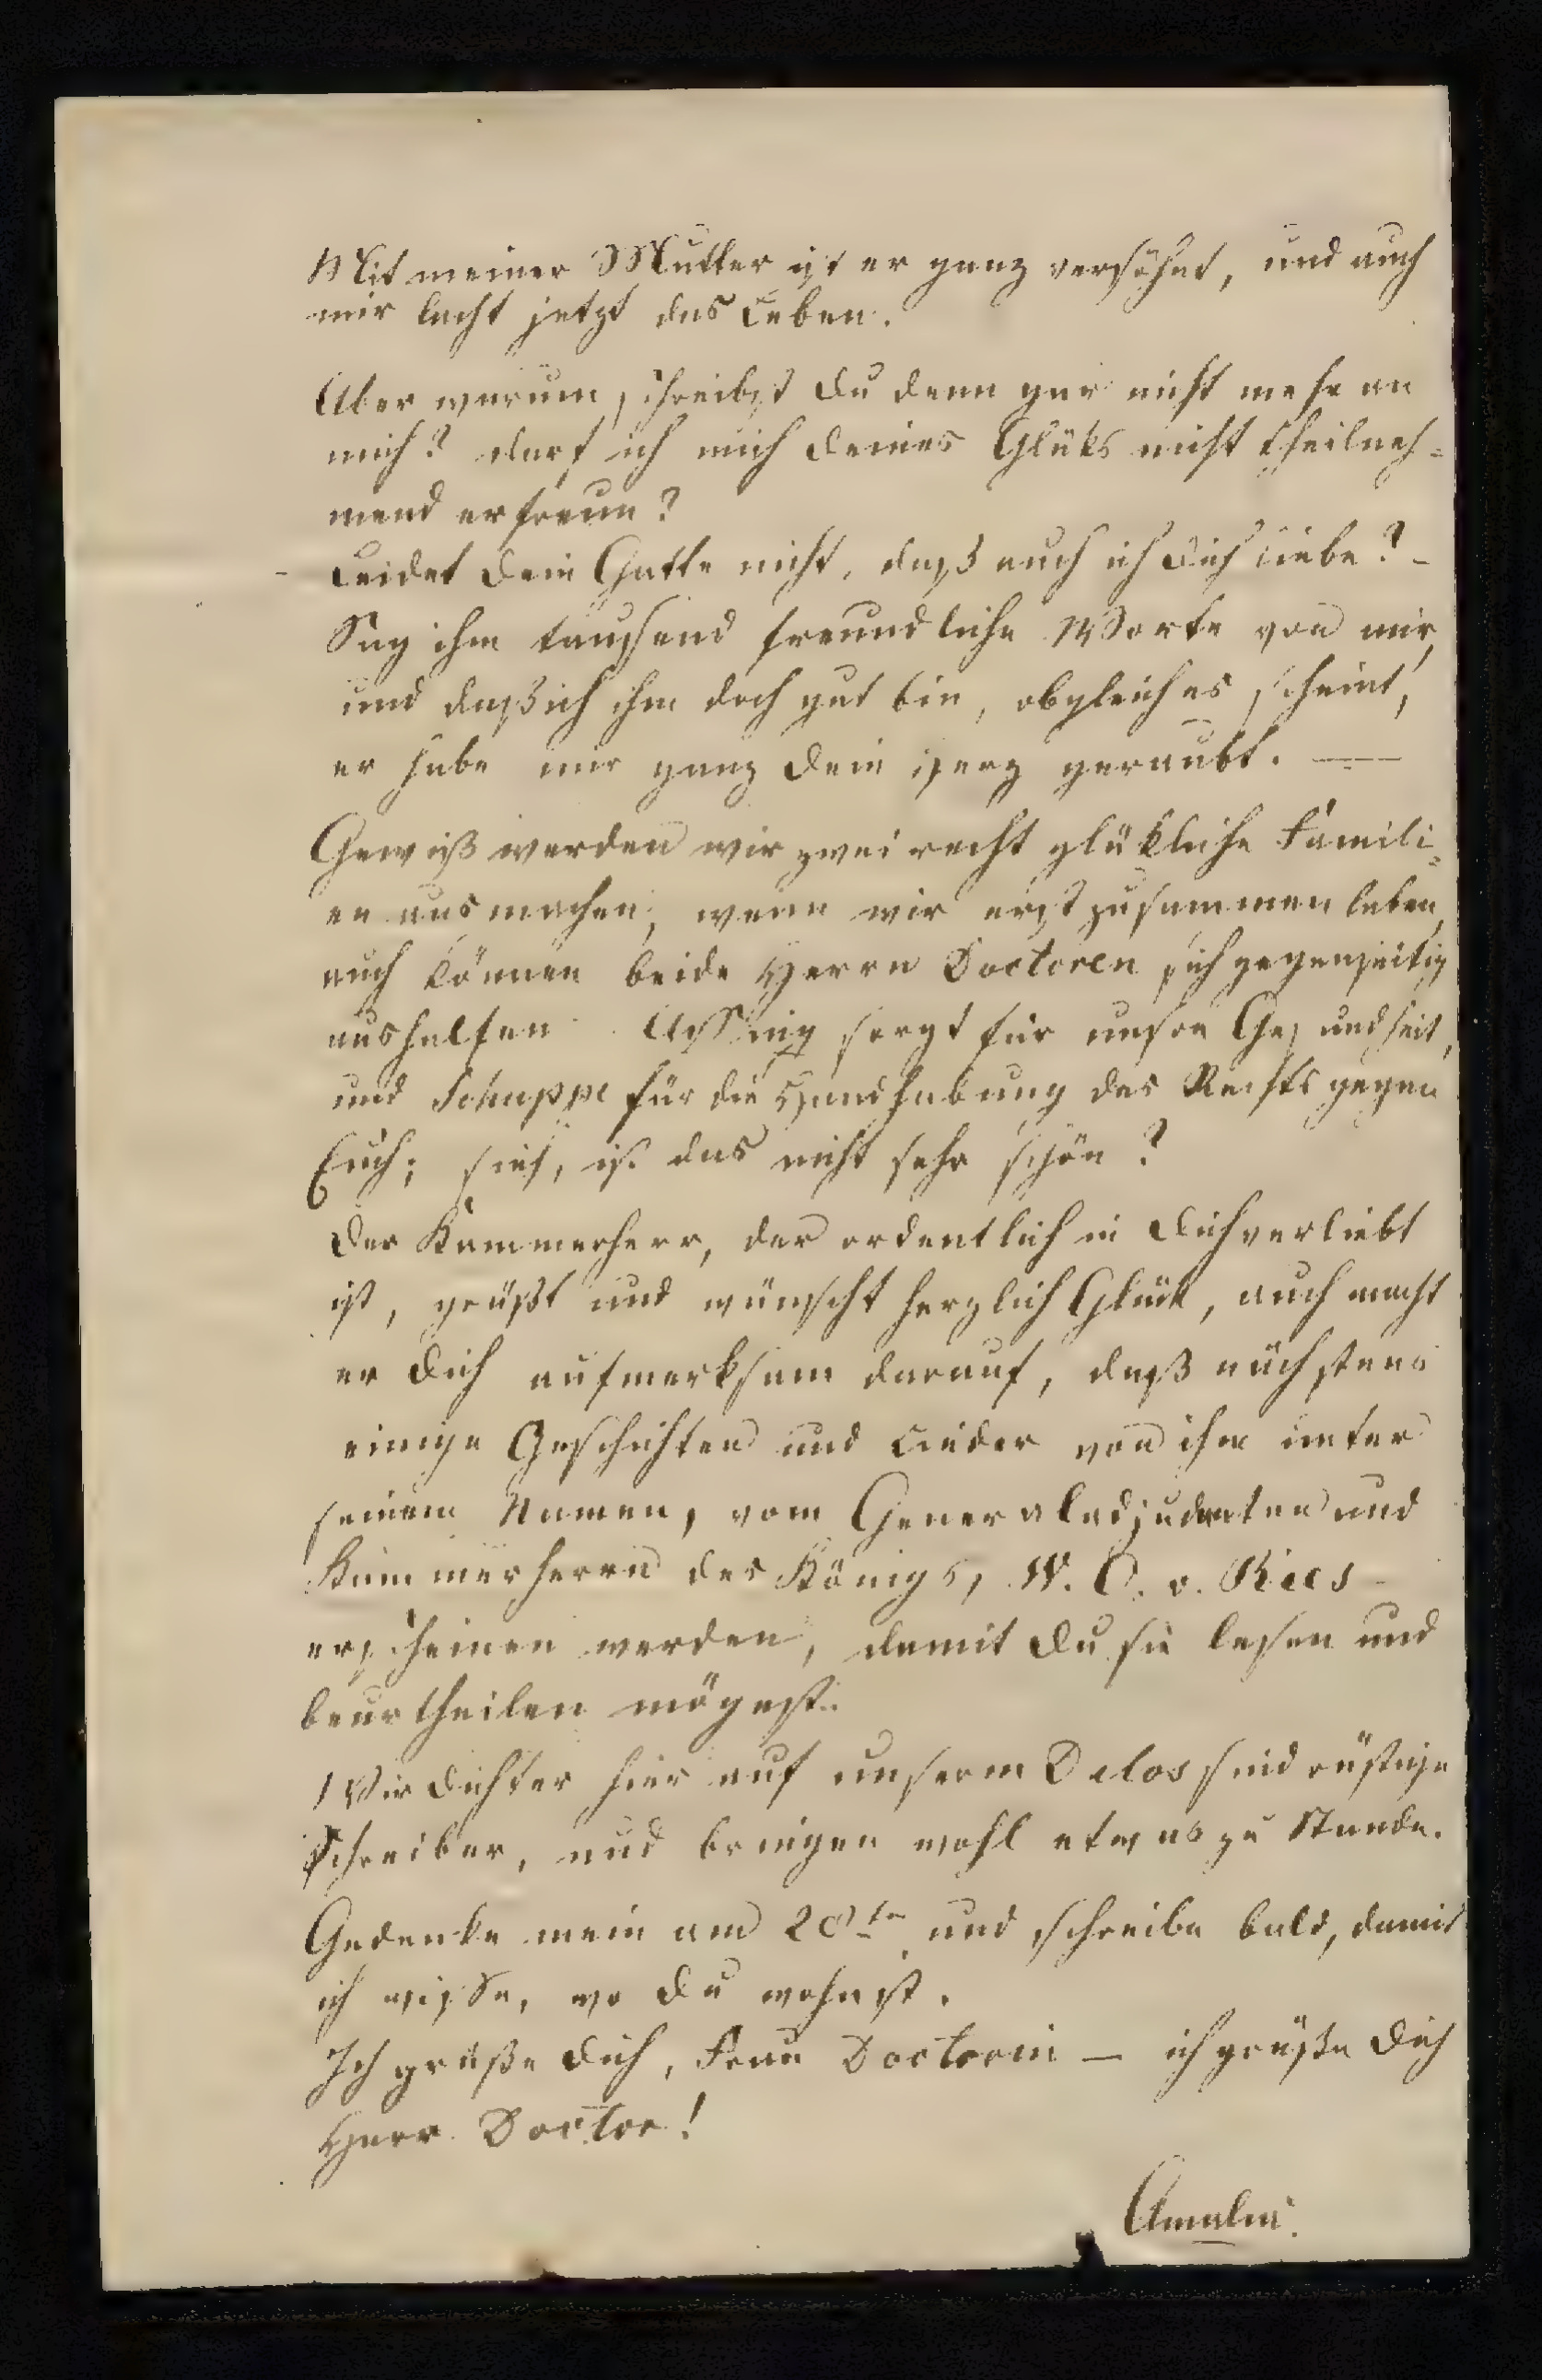 Mit meiner Mutter ist er ganz versöhnt, und auch
mir lacht jetzt das Leben.
Aber warum schreibst du denn gar nicht mehr an
mich? darf ich mich deines Glüks nicht theilneh=
mend erfreun?
Leidet dein Gatte nicht, daß auch ich dich liebe? –
Sag ihm tausend freundliche Worte von mir,
und daß ich ihm doch gut bin, obgleich es scheint,
er habe mir ganz dein Herz geraubt. —
Gewiß werden wir zwei recht glükliche Famili=
en ausmachen, wenn wir erst zusammen leben,
auch können beide Herrn Doctoren sich gegenseitig
aushelfen. Assing sorgt für unsre Gesundheit,
und Schuppe für die Handhabung des Rechts gegen
Euch; sieh, ist das nicht sehr schön?
Der Kammerherr, der ordentlich in dich verliebt
ist, grüßt und wünscht herzlich Glück, auch macht
er dich aufmerksam darauf, daß nächstens
einige Geschichten und Lieder von ihm unter
seinem Namen, vom Generaladjudanten und
Kammerherrn des Königs, W. C. v.
erscheinen werden, damit du sie lesen und
beurtheilen mögest.
Wir Dichter hier auf unserm Delos sind rüstige
Schreiber, und bringen wohl etwas zu Stande.
Gedenke mein am 28ten und schreibe bald, damit
ich wisse, wo du wohnst.
Ich grüße dich, Frau Doctorin — ich grüße dich
Herr Doctor!
Amalia.